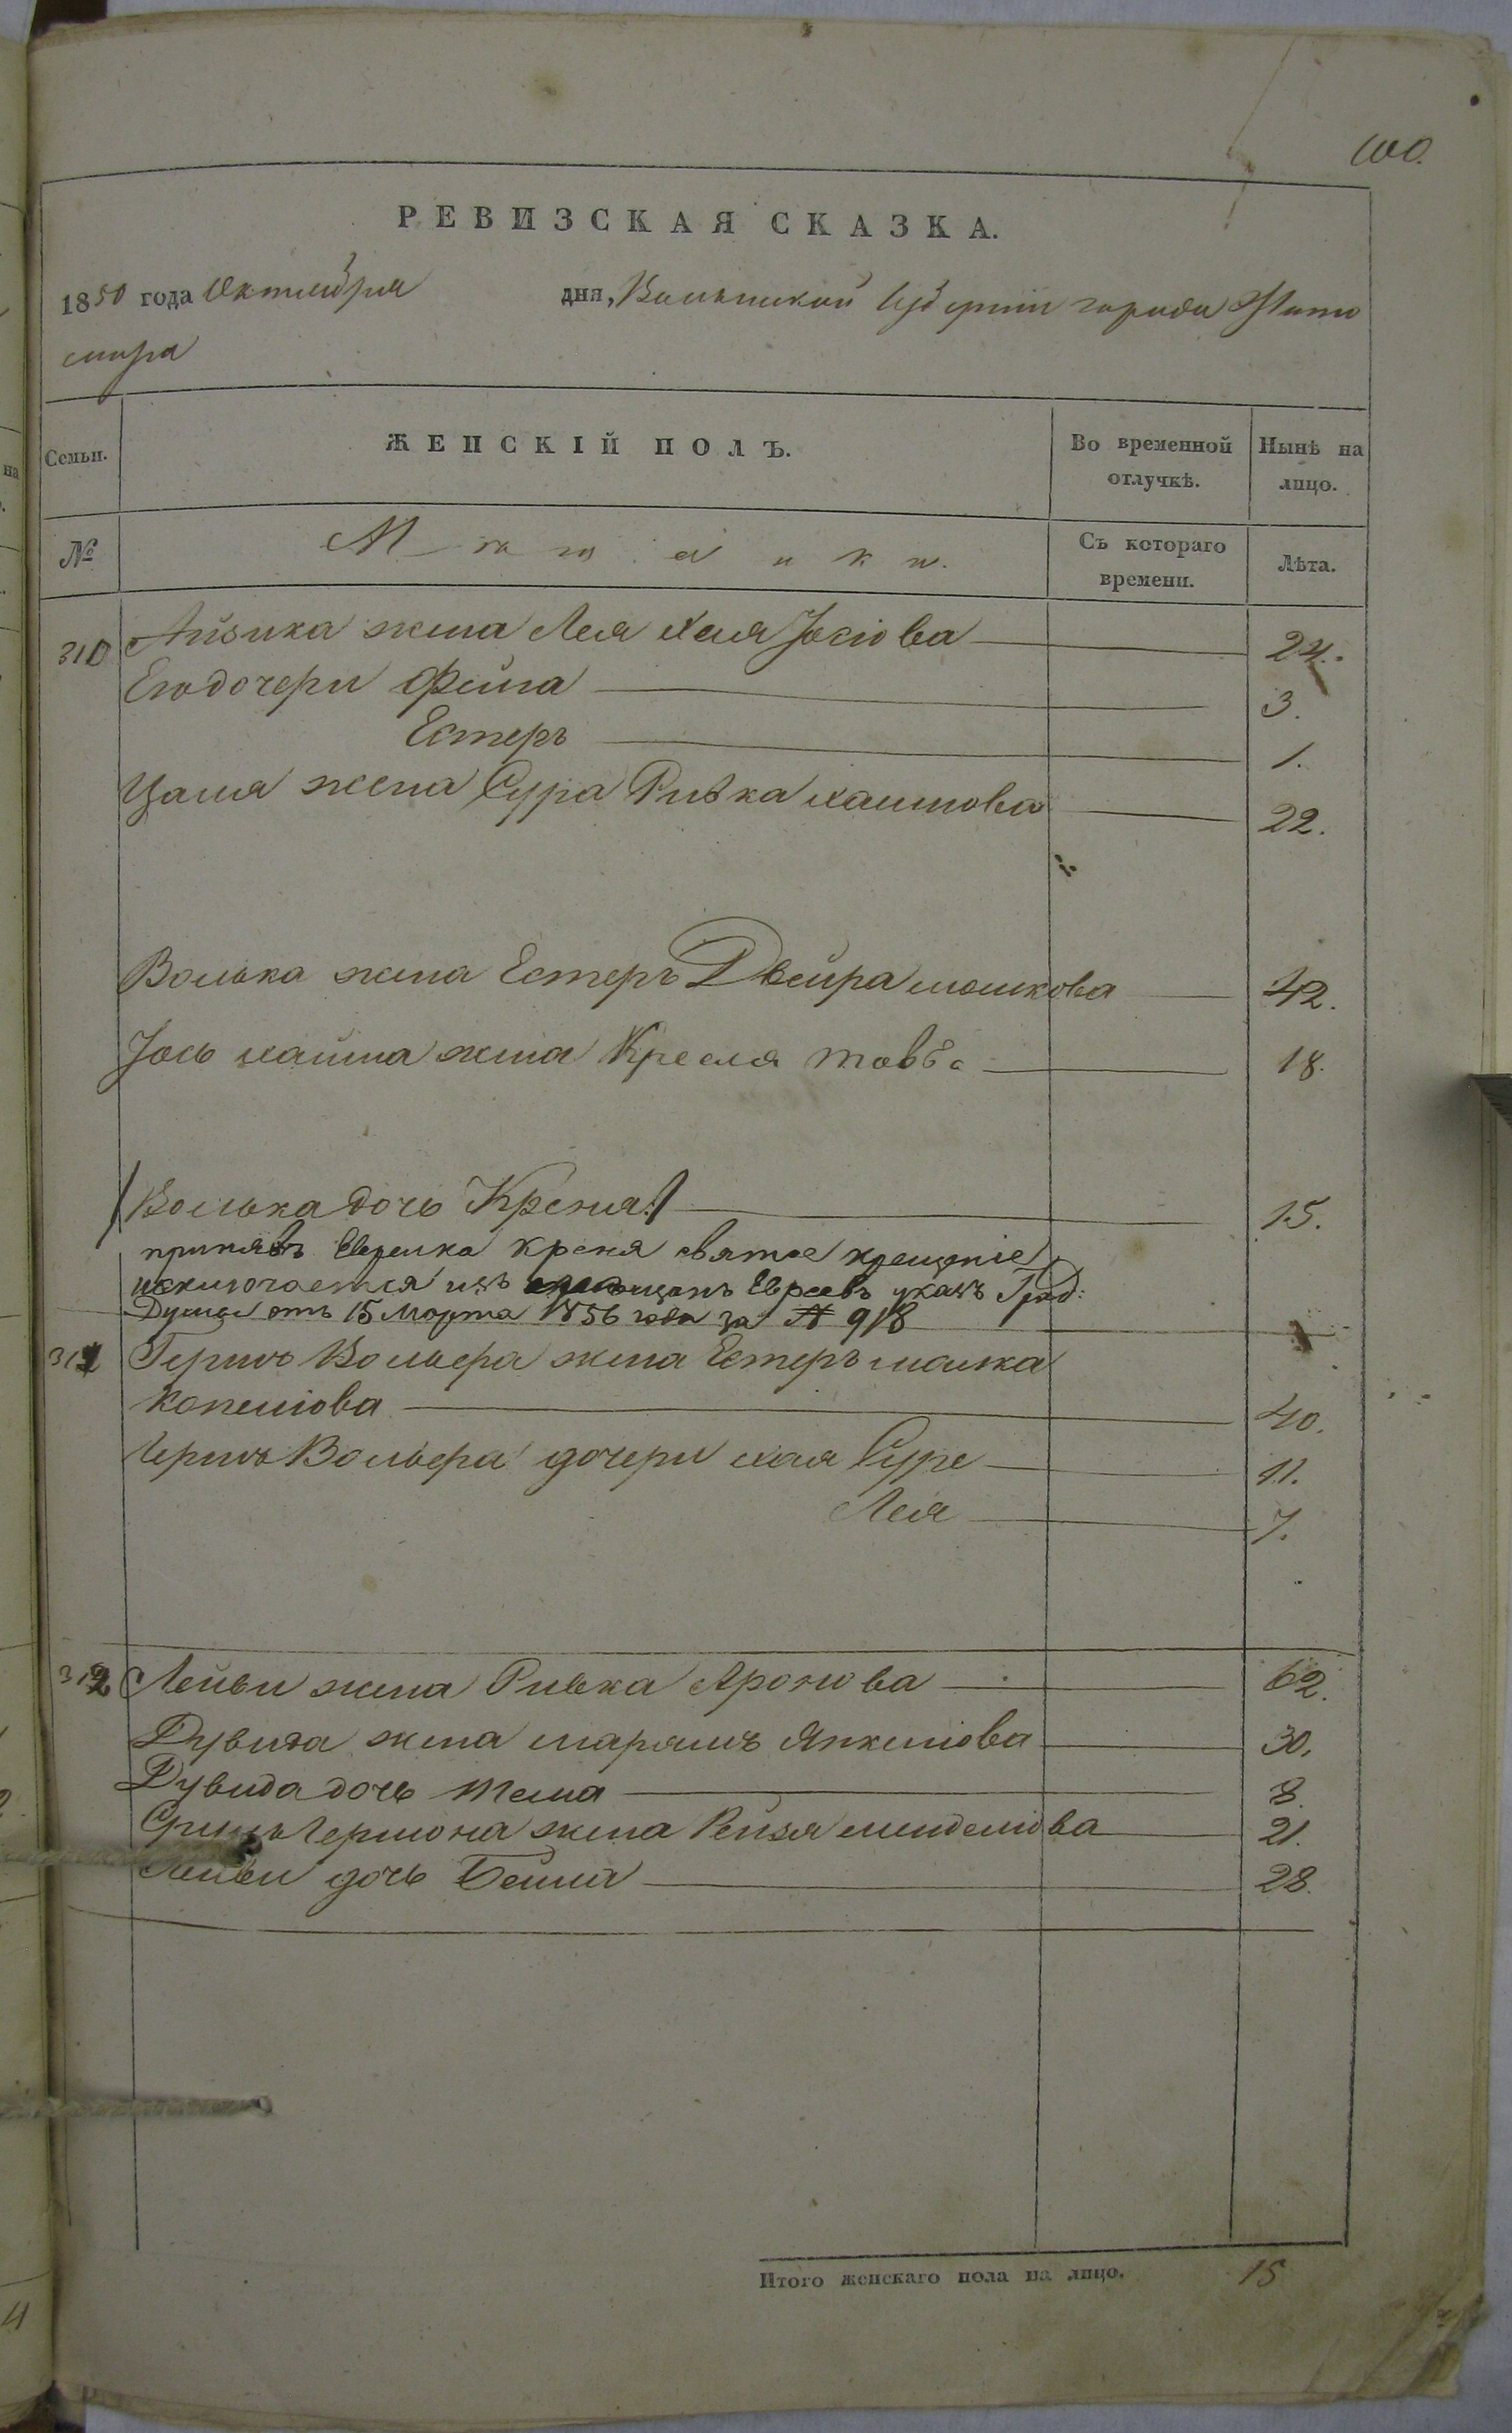 100.
РЕВИЗСКАЯ СКАЗКА.
1850 года Октября дня, Волынской Губернiи города Жито
мира
Семьи. ЖЕНСКIЙ ПОЛЪ. Во временной отлучкѣ. Нынѣ на лицо.
№ Мѣщанки. Съ котораго времени. Лѣта.
310 Айзика жена Лея Хая Іосiова 24.
Его дочери Фейга 3.
Естеръ 1.
Цаля жена Сура Ривка хаимова 22.
Волька жена Естеръ Двейра мошкова 42.
Іось хаима жена Кресля товѣа 18.
Волька дочь Креня 15.
принявъ Еврейка Креня святое крещенiе
исключается изъ мещанъ Евреевъ указъ Град:
Думы отъ 15 Марта 1856 года за № 918
311 Гершъ Вольфа жена Естеръ малка
Копелiова 40.
Гершъ Вольфа дочери хая Суре 11.
Лея 7.
312 Лейби жена Ривка Аронова 62.
Дувида жена марямъ Янкелiова 30.
Дувида дочь Тема 8.
Сруль Гершона жена Рейзя менделiова 21.
Лейби дочь Бейла 28.
Итого женскаго пола на лицо. 15